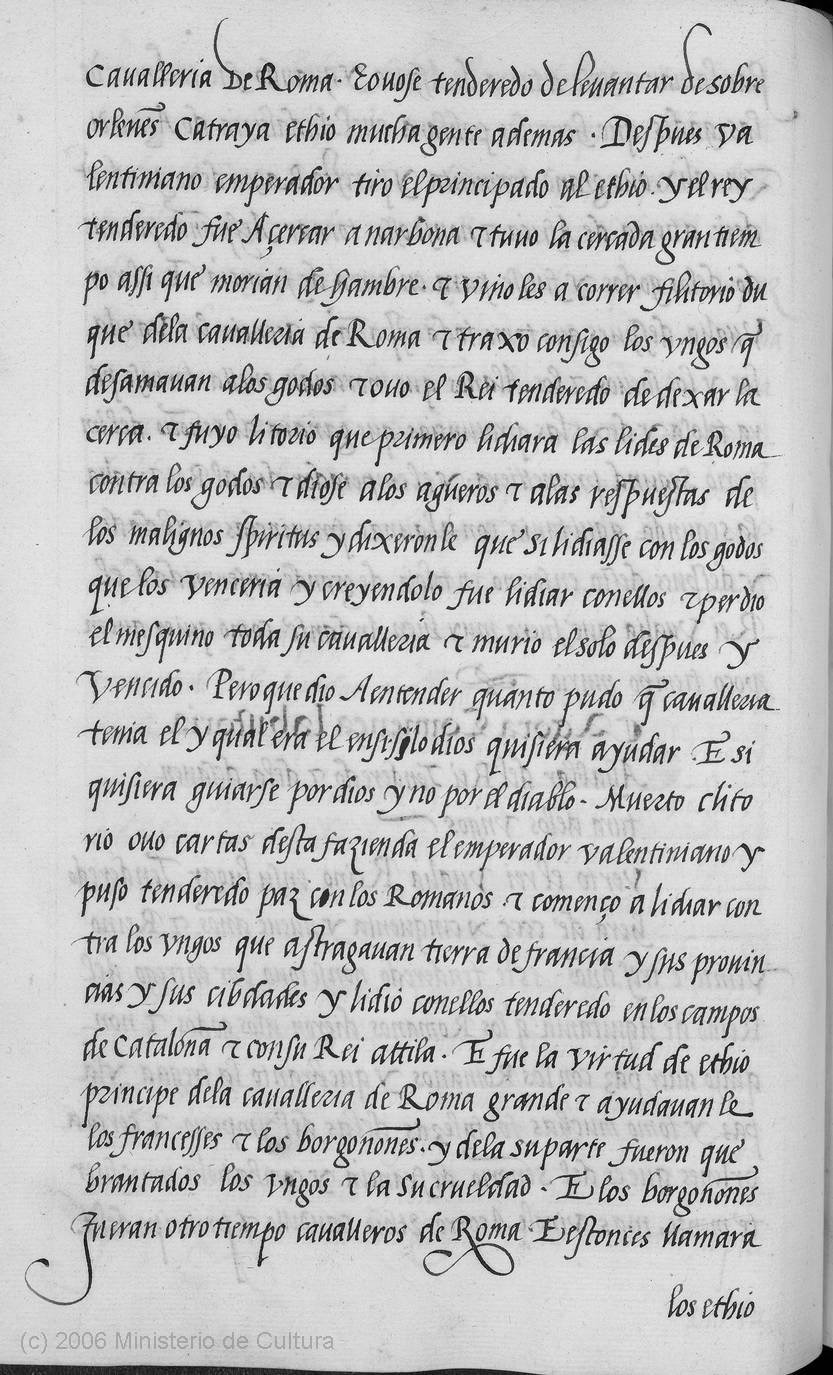 Cavalleria De Roma. Eovose tenderedo de levantar de sobre
orlenes Catraya ethio mucha gente ademas. Despues va
lentiniano emperador tiro el principado al ethio. y el rey
tenderedo fue Açercar a narbona τ tuvo la cercada gran tiem
po assi que morian de hambre. τ vino les a correr filitorio du
que dela cavalleria de Roma τ traxo consigo los vngos q̃
desamavan alos godos τ ovo el Rei tenderedo de dexar la
cerca. τ fuyo litorio que primero lidiara las lides de Roma
contra los godos τ diose alos agüeros τ alas respuestas de
los malignos spiritus y dixeronle que si lidiasse con los godos
que los venceria y creyendolo fue lidiar conellos τ perdio
el mesquino toda su cavalleria τ murio el solo despues y
Vencido. Pero que dio A entender quanto pudo q̃ cavalleria
tenia el y qual era el ensi silo dios quisiera ayudar. E si
quisiera guiarse por dios y no por el diablo. Muerto clito
rio ovo cartas desta fazienda el emperador valentiniano y
puso tenderedo paz con los Romanos τ començo a lidiar con
tra los vngos que astragavan tierra de francia y sus provin
cias y sus cibdades y lidio conellos tenderedo en los campos
de Catalona τ con su Rei attila. E fue la virtud de ethio
principe dela cavalleria de Roma grande τ ayudavan le
los francesses τ los borgoñones. y dela su parte fueron que
brantados los vngos τ la su crueldad. E los borgoñones
fueran otro tiempo cavalleros de Roma E estonces llamara
los ethio
(c) 2006 Ministerio de Cultura